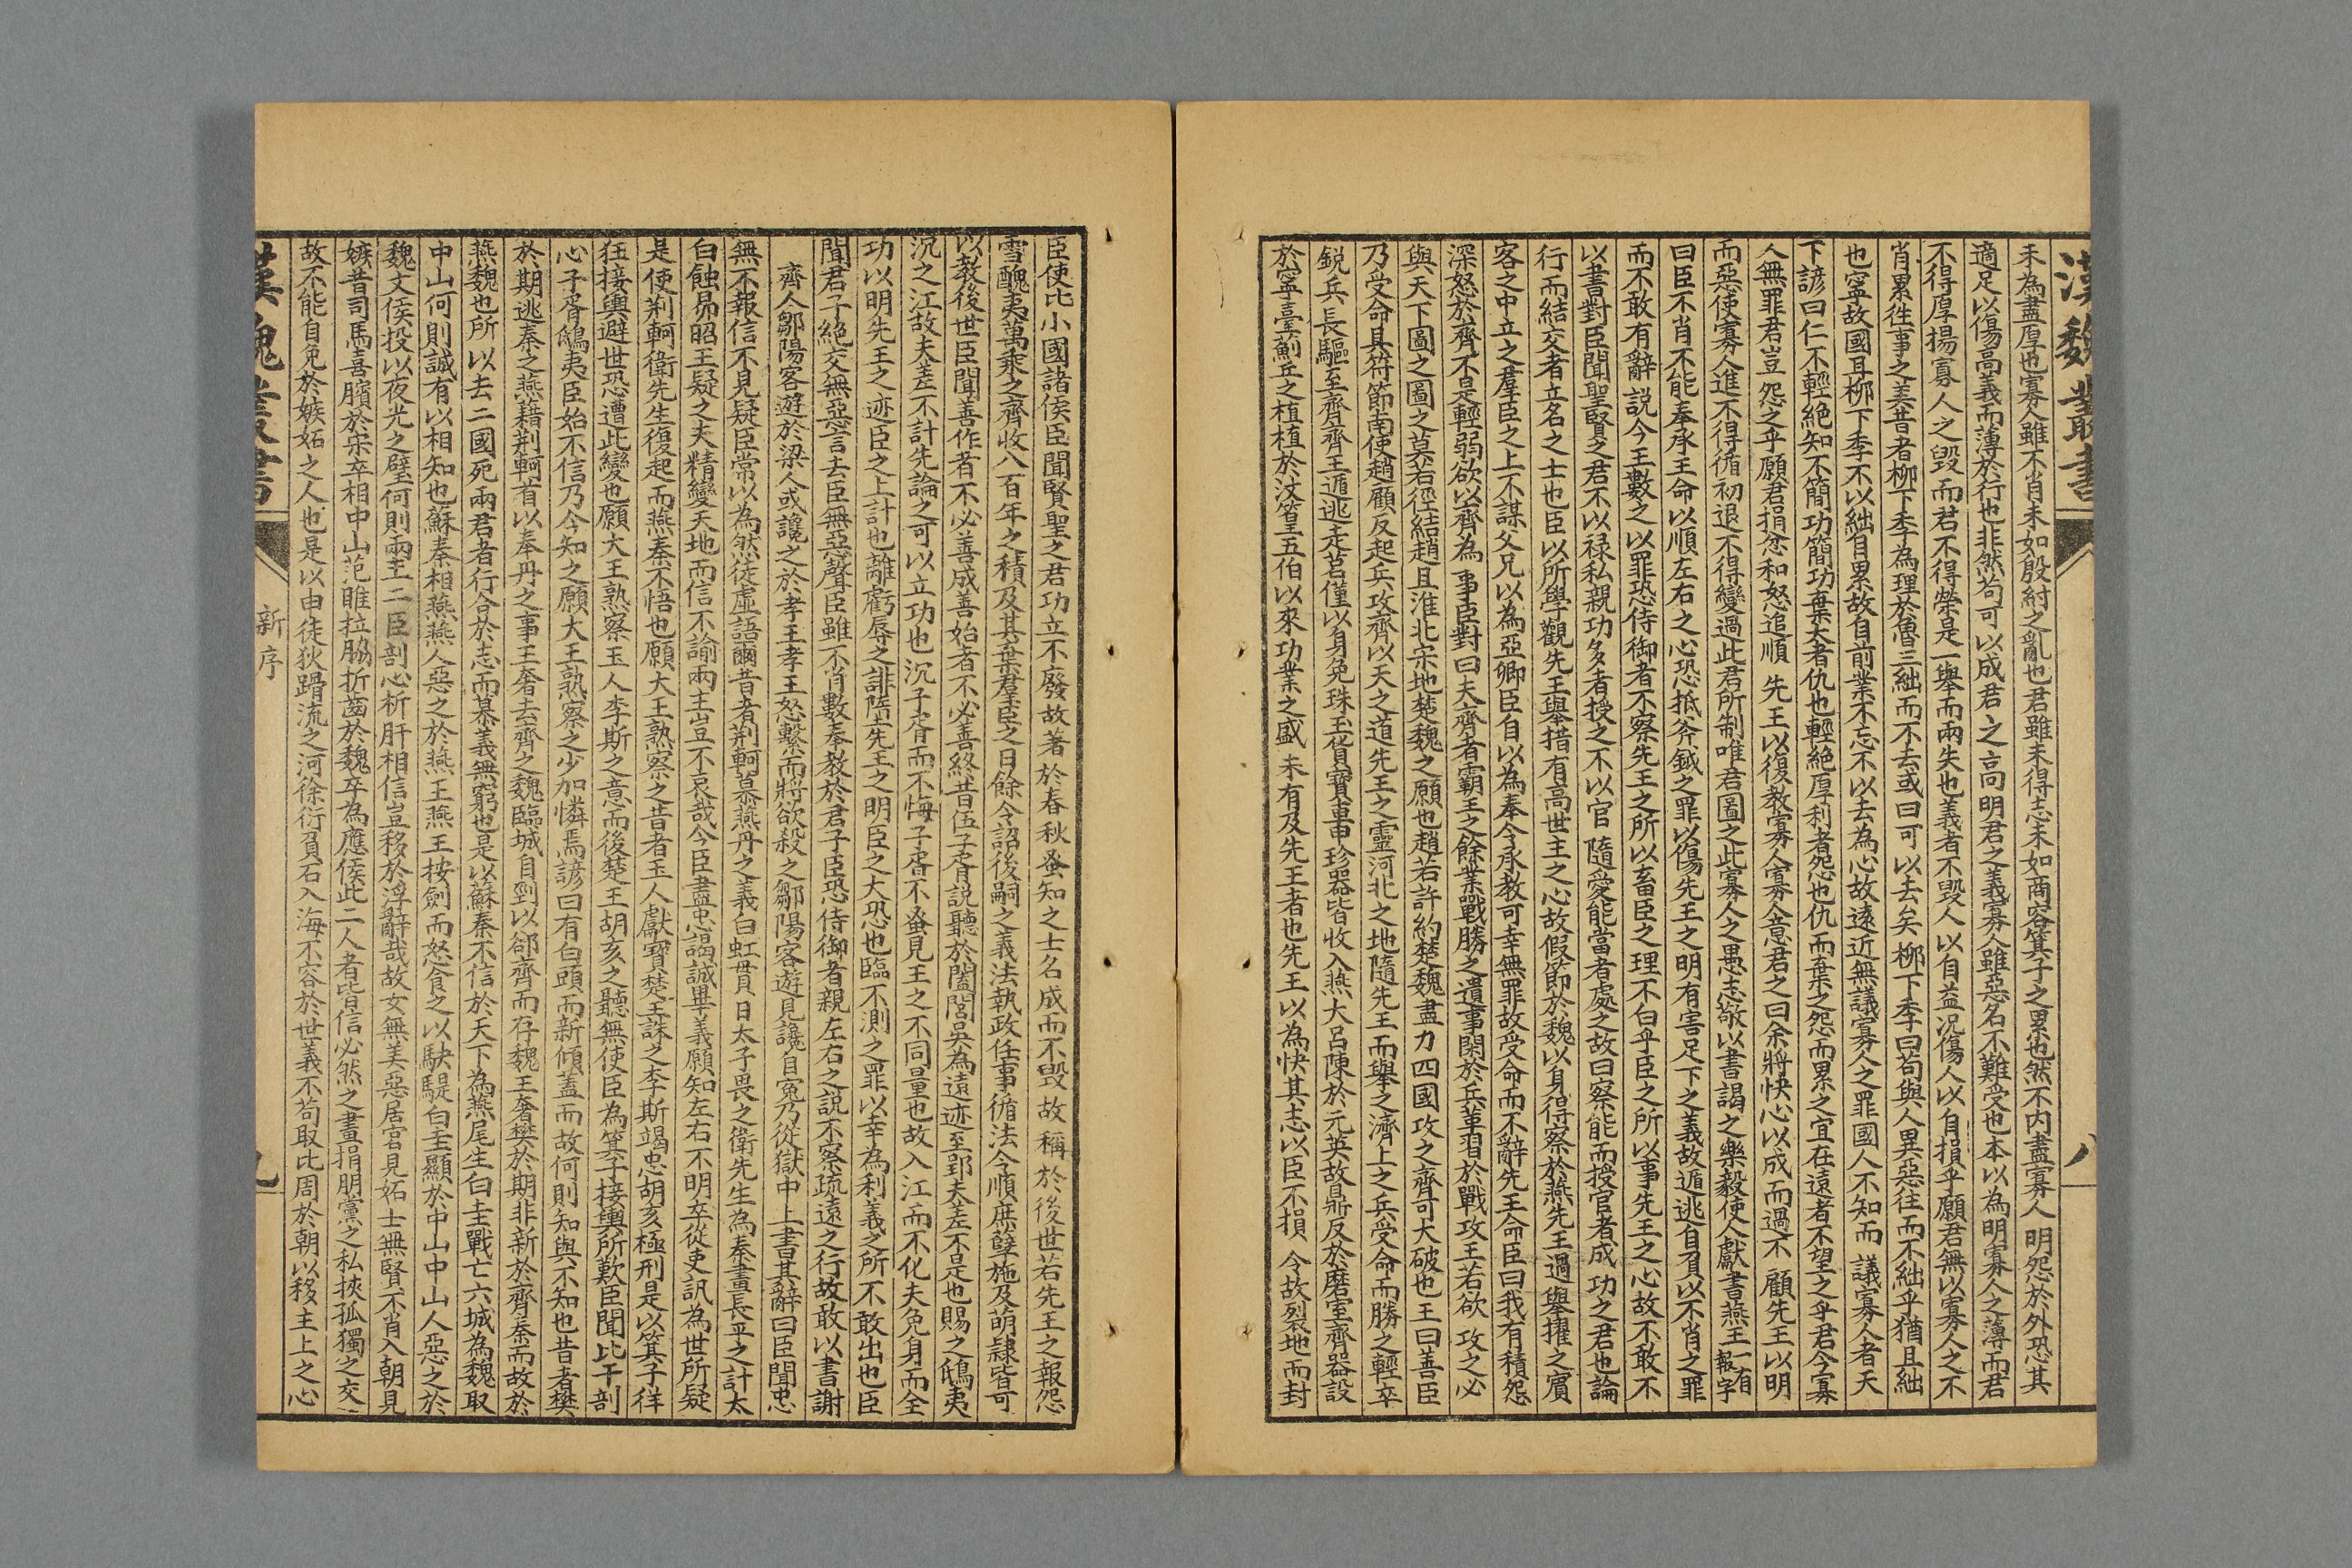 漢魏叢書
八
未為盡厚也寡人雖不肖未如殷紂之亂也君雖未得志未如商容箕子之累也然不内盡寡人明怨於外恐其
適足以傷高義而薄於行也非然苟可以成君之高明君之義寡人雖惡名不難受也本以為明寡人之薄而君
不得厚揚寡人之毁而君不得榮是一舉而兩失也義者不毁人以自益况傷人以自損乎願君無以寡人之不
肖累往事之美昔者柳下季為理於魯三絀而不去或曰可以去矣柳下季曰苟與人異惡往而不絀乎猶且絀
也寧故國耳柳下季不以絀自累故自前業不忘不以去為心故遠近無議寡人之罪國人不知而議寡人者天
下諺曰仁不輕絶知不簡功簡功棄大者仇也輕絶厚利者怨也仇而棄之怨而累之宜在遠者不望之乎君今寡
人無罪君豈怨之乎願君捐忿和怒追順先王以復教寡人寡人意君之曰余將快心以成而過不顧先王以明
而惡使寡人進不得循初退不得變過此君所制唯君圖之此寡人之愚志敬以書謁之樂毅使人獻書燕王一有報字
曰臣不肖不能奉承王命以順左右之心恐抵斧鉞之罪以傷先王之明有害足下之義故遁逃自負以不肖之罪
而不敢有辭説今王數之以罪恐侍御者不察先王之所以畜臣之理不白乎臣之所以事先王之心故不敢不
以書對臣聞聖賢之君不以禄私親功多者授之不以官隨愛能當者處之故曰察能而授官者成功之君也論
行而結交者立名之士也臣以所學觀先王舉措有高世主之心故假節於魏以身得察於燕先王過舉擢之賓
客之中立之群臣之上不謀父兄以為亞卿臣自以為奉令承教可幸無罪故受命而不辭先王命臣曰我有積怨
深怒於齊不是輕弱欲以齊為事臣對曰夫齊者霸王之餘業戰勝之遺事閑於兵革習於戰攻王若欲攻之必
與天下圖之圖之莫若徑結趙且淮北宋地楚魏之願也趙若許約楚魏盡力四國攻之齊可大破也王曰善臣
乃受命具符節南使趙顧反起兵攻齊以天之道先王之靈河北之地隨先王而舉之濟上之兵受命而勝之輕卒
鋭兵長驅至齊齊王遁逃走莒僅以身免珠玉貨寶車甲珍器皆收入燕大呂陳於元英故鼎反於磨室齊器設
於寧臺薊丘之植植於汶篁五伯以來功業之盛未有及先王者也先王以為快其志以臣不損令故裂地而封
臣使比小國諸侯臣聞賢聖之君功立不廢故著於春秋蚤知之士名成而不毁故稱於後世若先王之報怨
雪醜夷萬乘之齊收八百年之積及其棄群臣之日餘令詔後嗣之義法執政任事循法令順庶孽施及萌隸皆可
以教後世臣聞善作者不必善成善始者不必善終昔伍子胥説聽於闔閭吳為遠迹至郢夫差不是也賜之鴟夷
沉之江故夫差不計先論之可以立功也沉子胥而不悔子胥不蚤見王之不同量也故入江而不化夫免身而全
功以明先王之迹臣之上計也離虧辱之誹隳先王之明臣之大恐也臨不測之罪以幸為利義之所不敢出也臣
聞君子絶交無惡言去臣無惡聲臣雖不肖數奉教於君子臣恐侍御者親左右之説不察疏遠之行故敢以書謝
齊人鄒陽客遊於梁人或讒之於孝王孝王怒繫而將欲殺之鄒陽客遊見讒自冤乃從獄中上書其辭曰臣聞忠
無不報信不見疑臣常以為然徒虚語爾昔者荆軻慕燕丹之義白虹貫日太子畏之衛先生為秦畫長平之計太
白蝕昴昭王疑之夫精變天地而信不諭兩主豈不哀哉今臣盡忠竭誠畢義願知左右不明卒從吏訊為世所疑
是使荆軻衛先生復起而燕秦不悟也願大王熟察之昔者玉人獻寶楚王誅之李斯竭忠胡亥極刑是以箕子佯
狂接輿避世恐遭此變也願大王熟察玉人李斯之意而後楚王胡亥之聽無使臣為箕子接輿所歎臣聞比干剖
心子胥鴟夷臣始不信乃今知之願大王熟察之少加憐焉諺曰有白頭而新傾蓋而故何則知與不知也昔者樊
於期逃秦之燕藉荆軻首以奉丹之事王奢去齊之魏臨城自剄以郤齊而存魏王奢樊於期非新於齊秦而故於
燕魏也所以去二國死兩君者行合於志而慕義無窮也是以蘇秦不信於天下為燕尾生白圭戰亡六城為魏取
中山何則誠有以相知也蘇秦相燕燕人惡之於燕王燕王按劍而怒食之以駃騠白圭顯於中山中山人惡之於
魏文侯投以夜光之璧何則兩主二臣剖心析肝相信豈移於浮辭哉故女無美惡居宮見妬士無賢不肖入朝見
嫉昔司馬喜臏於宋卒相中山范睢拉脇折齒於魏卒為應侯此二人者皆信必然之畫捐朋黨之私挾孤獨之交
故不能自免於嫉妬之人也是以由徒狄蹐流之河徐衍負石入海不容於世義不苟取比周於朝以移主上之心
漢魏叢書
新序
九